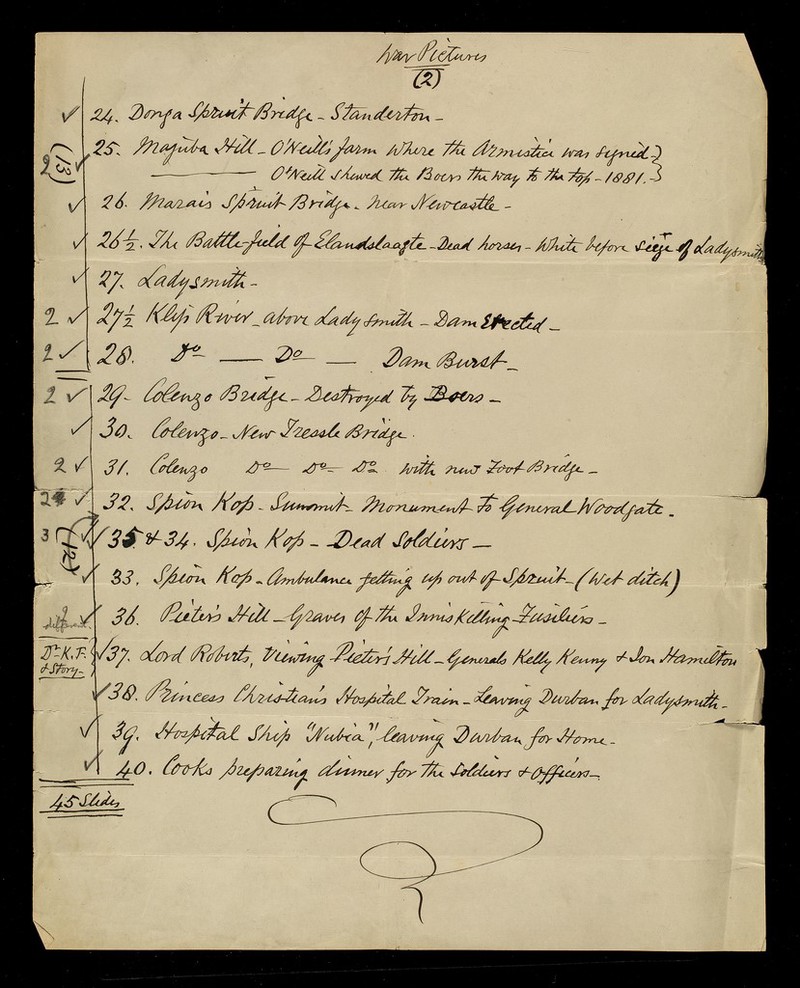 War Pictures
(2)
✓ 24. Donga Spruit Bridge - Standerton -
2 (13) ✓ 25. Majuba Hill - O'Neill's farm where the Armistice was signed - }
——— O'Neill showed the Boers the way to the top - 1881. - }
✓ 26. Marais Spruit Bridge - near Newcastle -
✓ 26½. The Battle-field of Elandslaagte - Dead horses - White before siege of Ladysmith
✓ 27. Ladysmith -
2 ✓ 27½ Klip River - above Ladysmith - Dam Erected -
2 ✓ 28. Do — Do — Dam Burst -
2 ✓ 29 - Colenzo Bridge - Destroyed by Boers -
✓ 30. Colenzo - New Tressle Bridge.
2 ✓ 31. Colenzo Do — Do - Do with new Foot Bridge -
2 ✓ 32. Spion Kop - Summit - Monument to General Woodgate -
3 (12) ✓ 35 & 34. Spion Kop - Dead Soldiers —
✓ 33. Spion Kop - Ambulance getting up out of Spruit - (Wet ditch)
2 different. ✓ 36. Pieter's Hill - Graves of the Inniskilling Fusiliers -
Dr K. F. & Story - } ✓ 37. Lord Roberts, Viewing Pieter's Hill - Generals Kelly Kenny & Ion Hamilton
✓ 38. Princess Christian's Hospital Train - Leaving Durban for Ladysmith -
✓ 39. Hospital Ship "Nubia", leaving Durban for Home -
✓ 40. Cooks preparing dinner for the Soldiers & Officers -
45 Slides